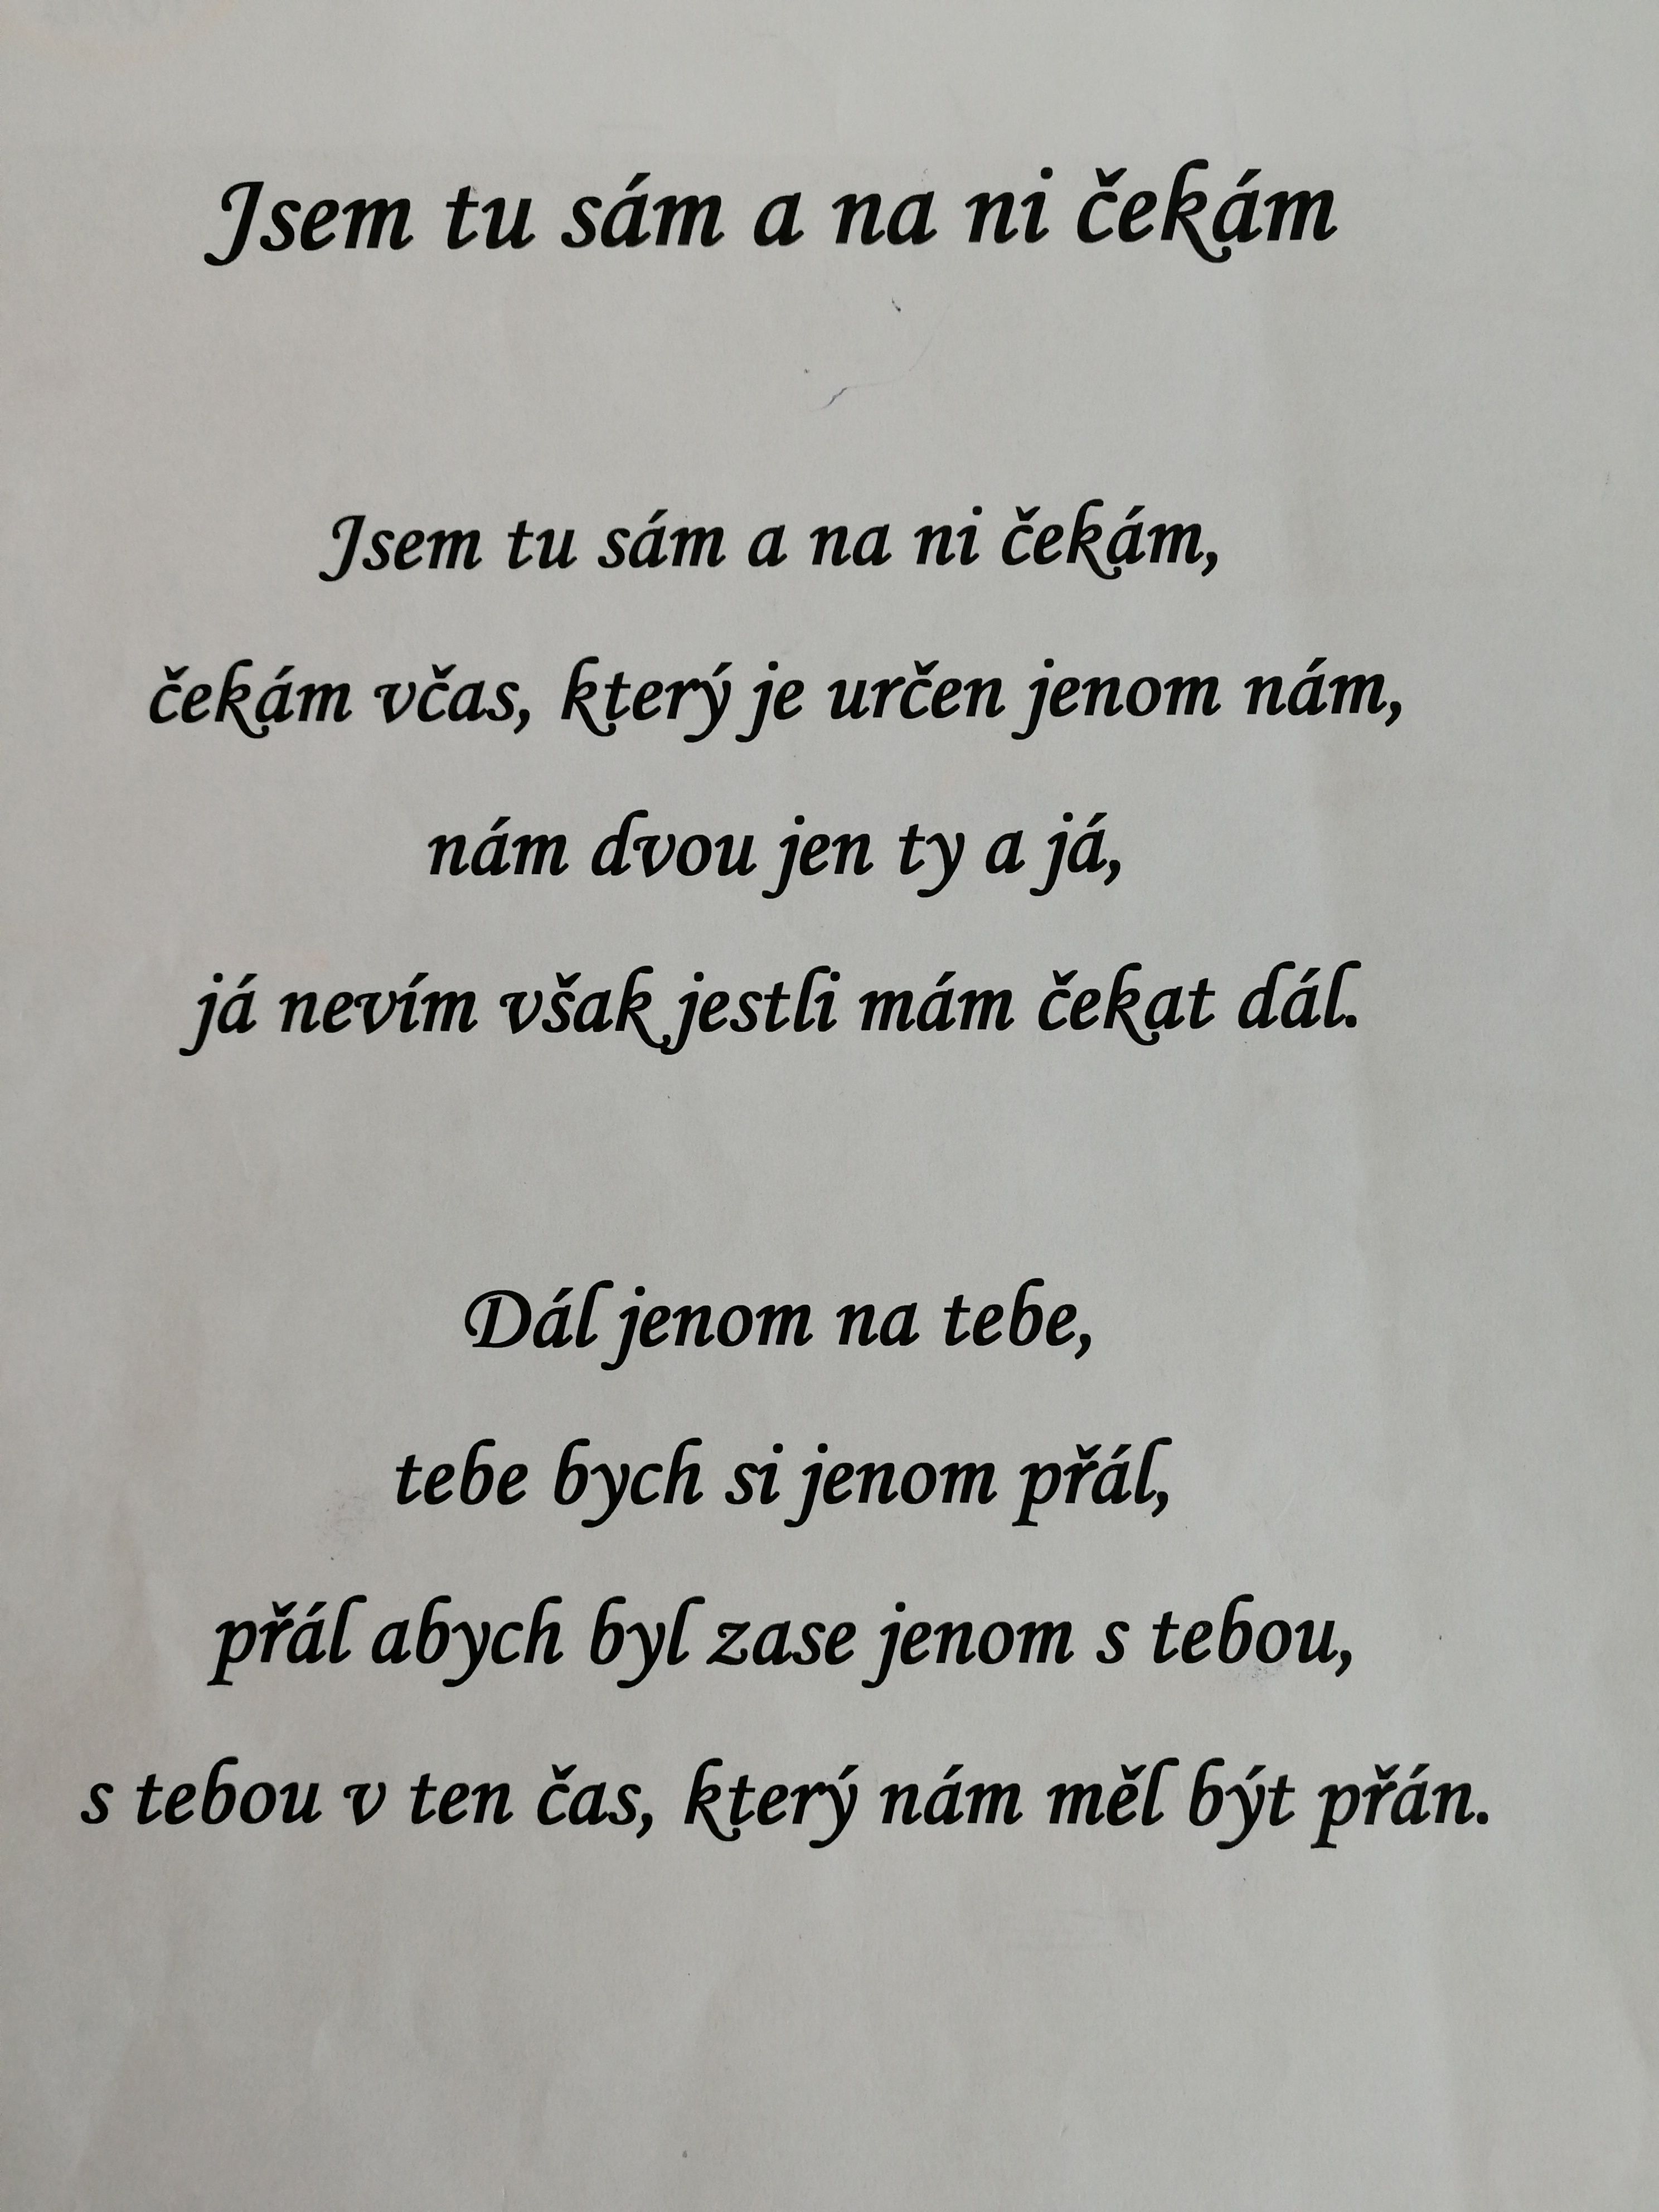 Jsem tu sám a na ni čekám
Jsem tu sám a na ni čekám,
čekám včas, který je určen jenom nám,
nám dvou jen ty a já,
já nevím však jestli mám čekat dál.
Dál jenom na tebe,
tebe bych si jenom přál,
přál abych byl zase jenom s tebou,
s tebou v ten čas, který nám měl být přán.